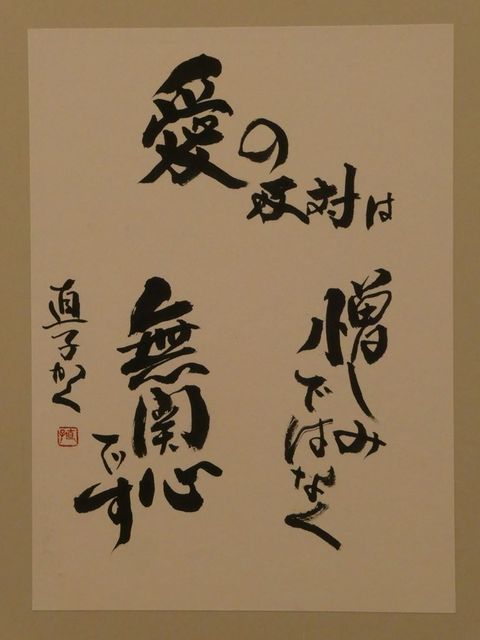 愛の
反対は
憎しみ
ではなく
無関心
です
直子かく